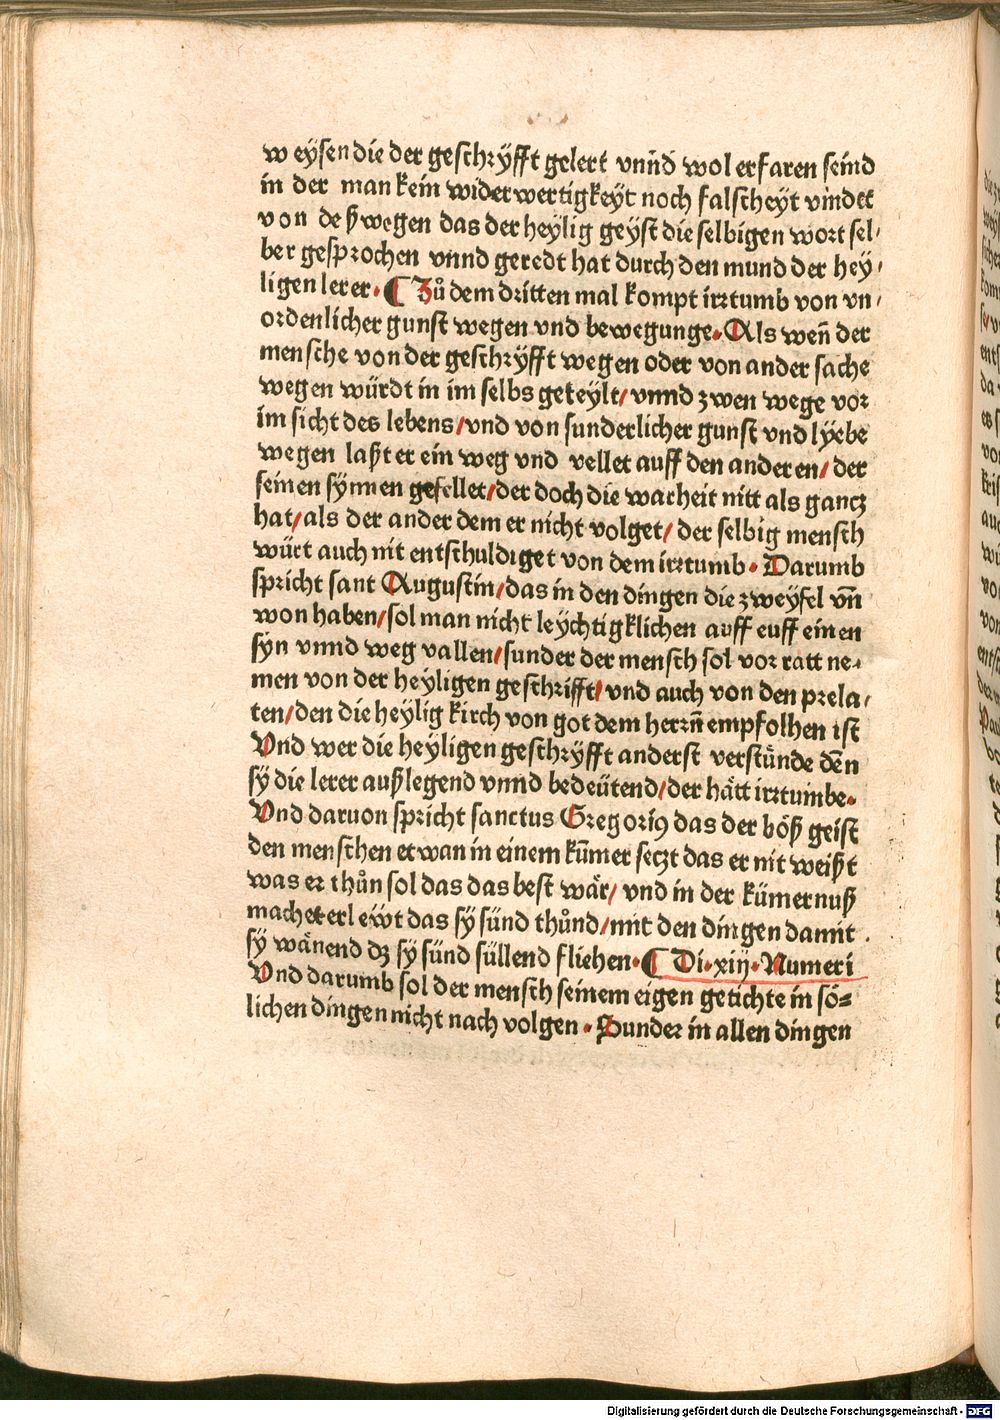 weysen die der geschrÿfft gelert vnnd wol erfaren seind
in der man kein widerwertigkeyt noch falscheyt vindet
von deßwegen das der heylig geyst die selbigen wort sel/
ber gesprochen vnnd geredt hat durch den mund der hey/
ligen lerer. ¶ Zů dem dritten mal kompt irrtumb von vn/
ordenlicher gunst wegen vnd bewegunge. Als wen̄ der
mensche von der geschrÿfft wegen oder von ander sache
wegen würdt in im selbs geteylt/ vnnd zwen wege vor
im sicht des lebens/ vnd von sunderlicher gunst vnd lÿebe
wegen laßt er ein weg vnd vellet auff den anderen/ der
seinen sÿnnen gefellet/ der doch die warheit nitt als gancz
hat/ als der ander dem er nicht volget/ der selbig mensch
würt auch nit entschuldiget von dem irrtumb. Darumb
spricht sant Augustin/ das in den dingen die zweÿfel vn̄
won haben/ sol man nicht leÿchtigklichen auff euff einen
sÿn vnnd weg vallen/ sunder der mensch sol vor ratt ne/
men von der heyligen geschrifft/ vnd auch von den prela/
ten/ den die heÿlig kirch von got dem herrn̄ empfolhen ist
Vnd wer die heÿligen geschrÿfft anderst verstünde den̄
sÿ die lerer außlegend vnnd bedeütend/ der hätt irrtumbe.
Vnd daruon spricht sanctus Gregoriꝰ das der böß geist
den menschen etwan in einem kūmer seczt das er nit weißt
was er thůn sol das das best wär/ vnd in der kümernuß
machet er leẅt das sÿ sünd thůnd/ mit den dingen damit
sÿ wänend dz sÿ sünd süllend fliehen. ¶ Di. xiij. Numeri
Vnd darumb sol der mensch seinem eigen getichte in sö=
lichen dingen nicht nach volgen. Sunder in allen dingen
Digitalisierung gefördert durch die Deutsche Forschungsgemeinschaft - DFG